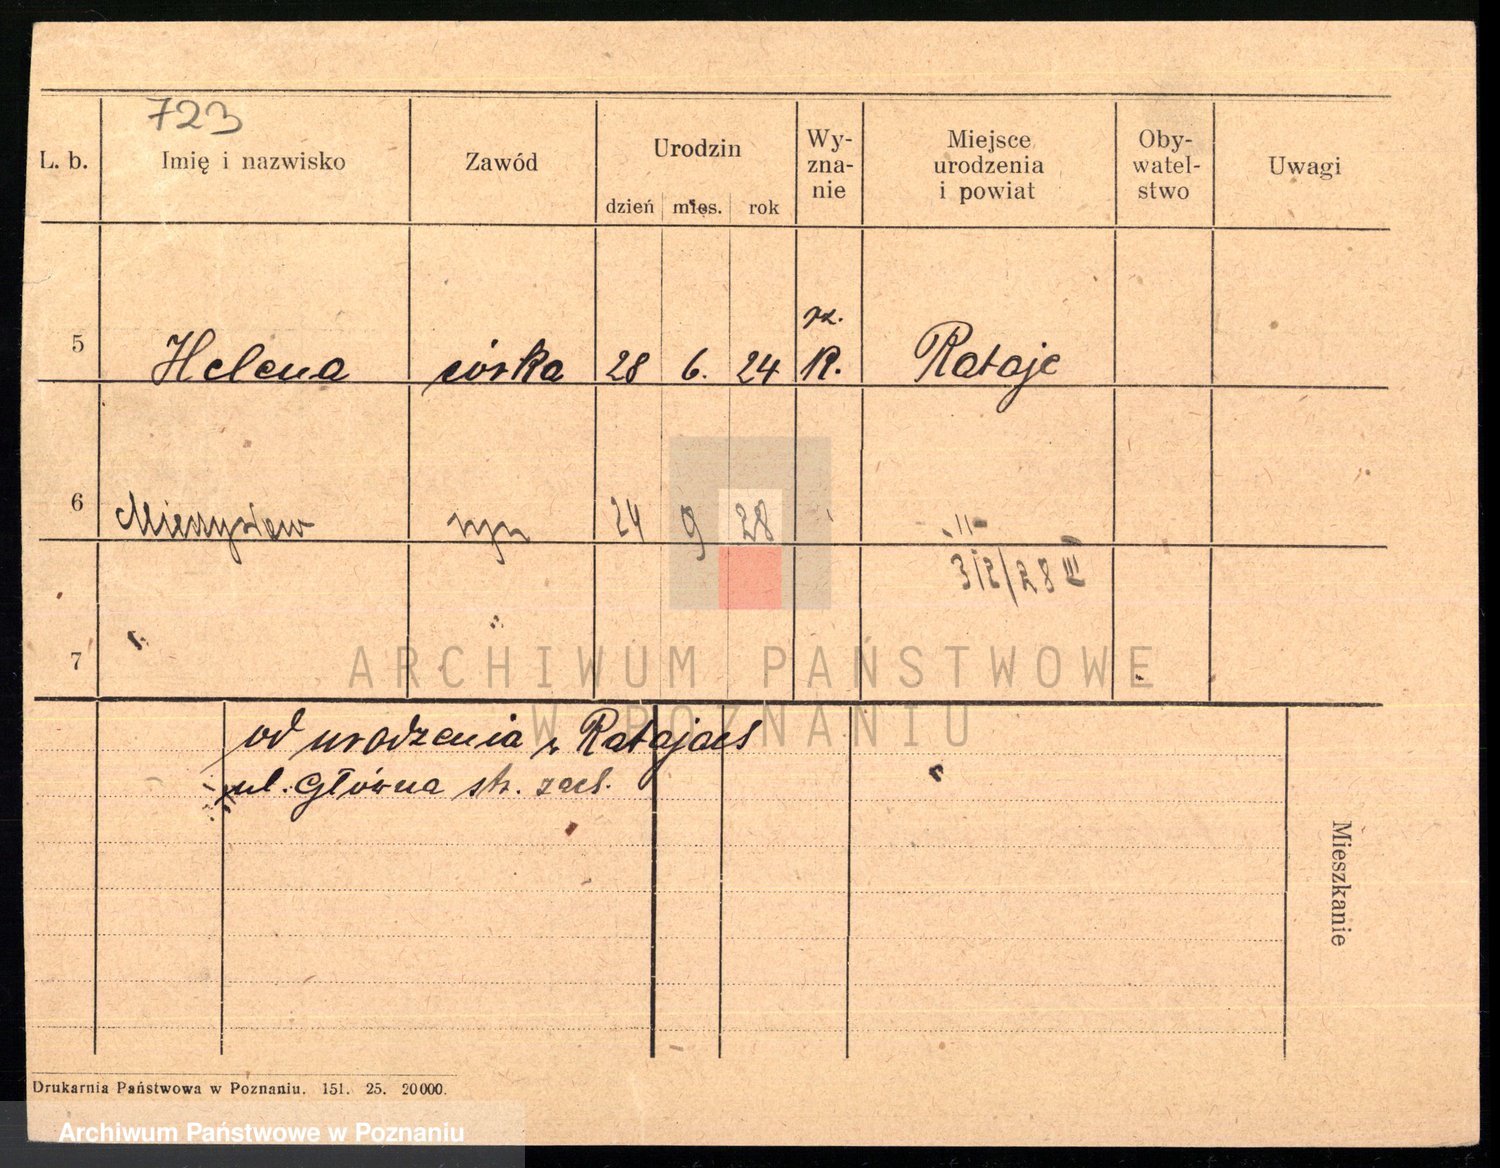 723
L. b. Imię i nazwisko Zawód Urodzin dzień mies. rok Wy-zna-nie Miejsce urodzenia i powiat Oby-watel-stwo Uwagi
5 Helena córka 28 6. 24 rz. K. Rataje
6 Mieczysław syn 24 9 28 -"-
7
ARCHIWUM PAŃSTWOWE
W POZNANIU
od urodzenia w Ratajach
ul. Główna str. zach.
Mieszkanie
Drukarnia Państwowa w Poznaniu. 151. 25. 20000.
Archiwum Państwowe w Poznaniu